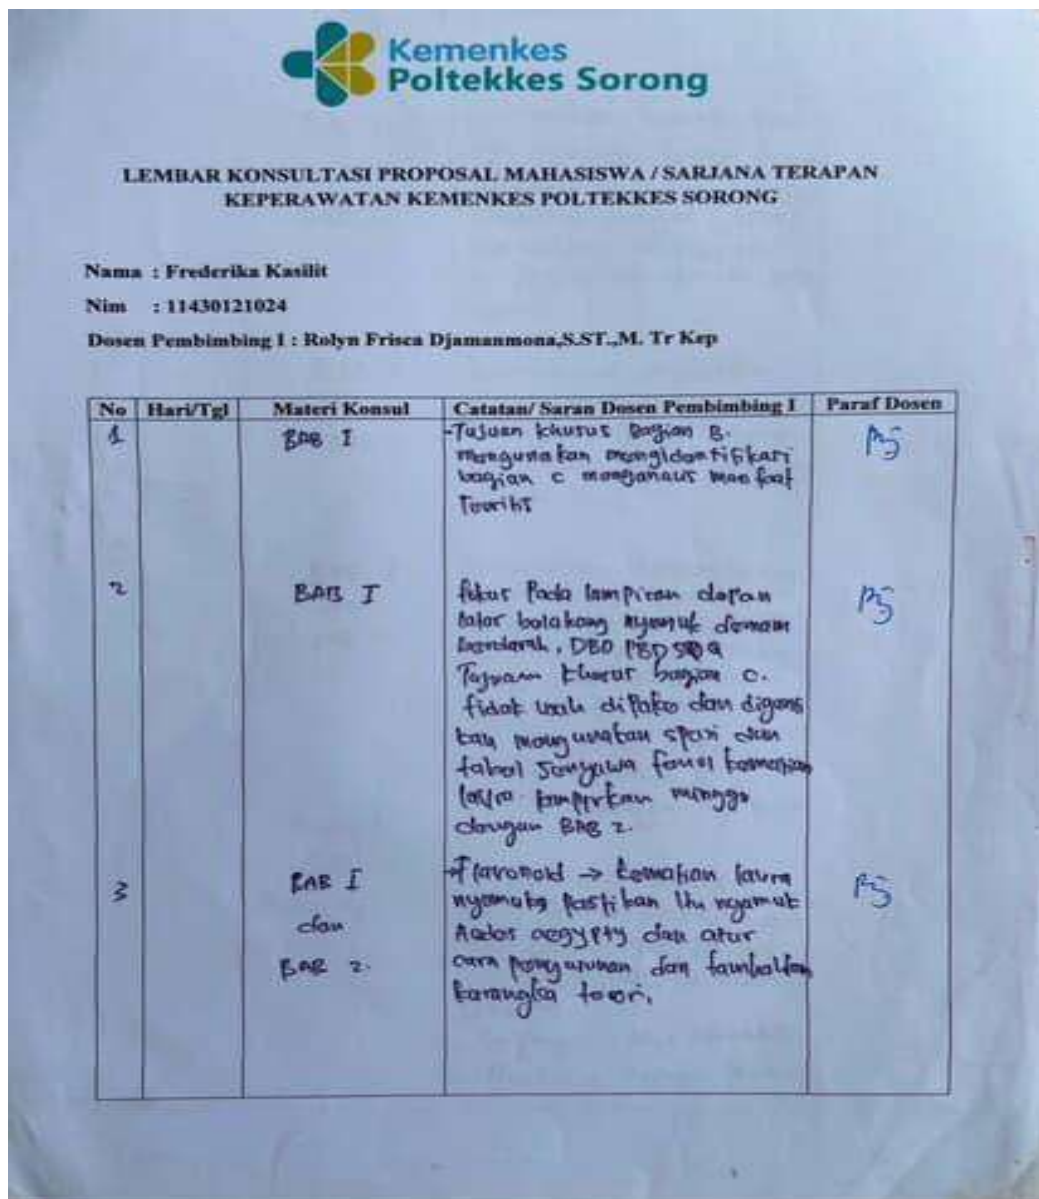 Kemenkes
Poltekkes Sorong
LEMBAR KONSULTASI PROPOSAL MAHASISWA / SARJANA TERAPAN
KEPERAWATAN KEMENKES POLTEKKES SORONG
Nama : Frederika Kasilit
Nim : 11430121024
Dosen Pembimbing I : Rolyn Frisca Djamanmona,S.ST.,M. Tr Kep
No Hari/Tgl Materi Konsul Catatan/ Saran Dosen Pembimbing I Paraf Dosen
1 BAB I -Tujuan khusus Bagian B.
mengunakan mengidentifikasi
bagian c
2 BAB I Pada lampiran depan
latar belakang nyamuk demam
berdarah, DBD
Tujuan khusus bagian c.
tidak usah dipake dan digan
mengunakan dan
tabel senyawa
minggu
dengan BAB 2.
3 BAB I Flavonoid → kematian larva
dan nyamuk pastikan nyamuk
BAB 2. dan atur
cara dan tambahkan
karangka teori.